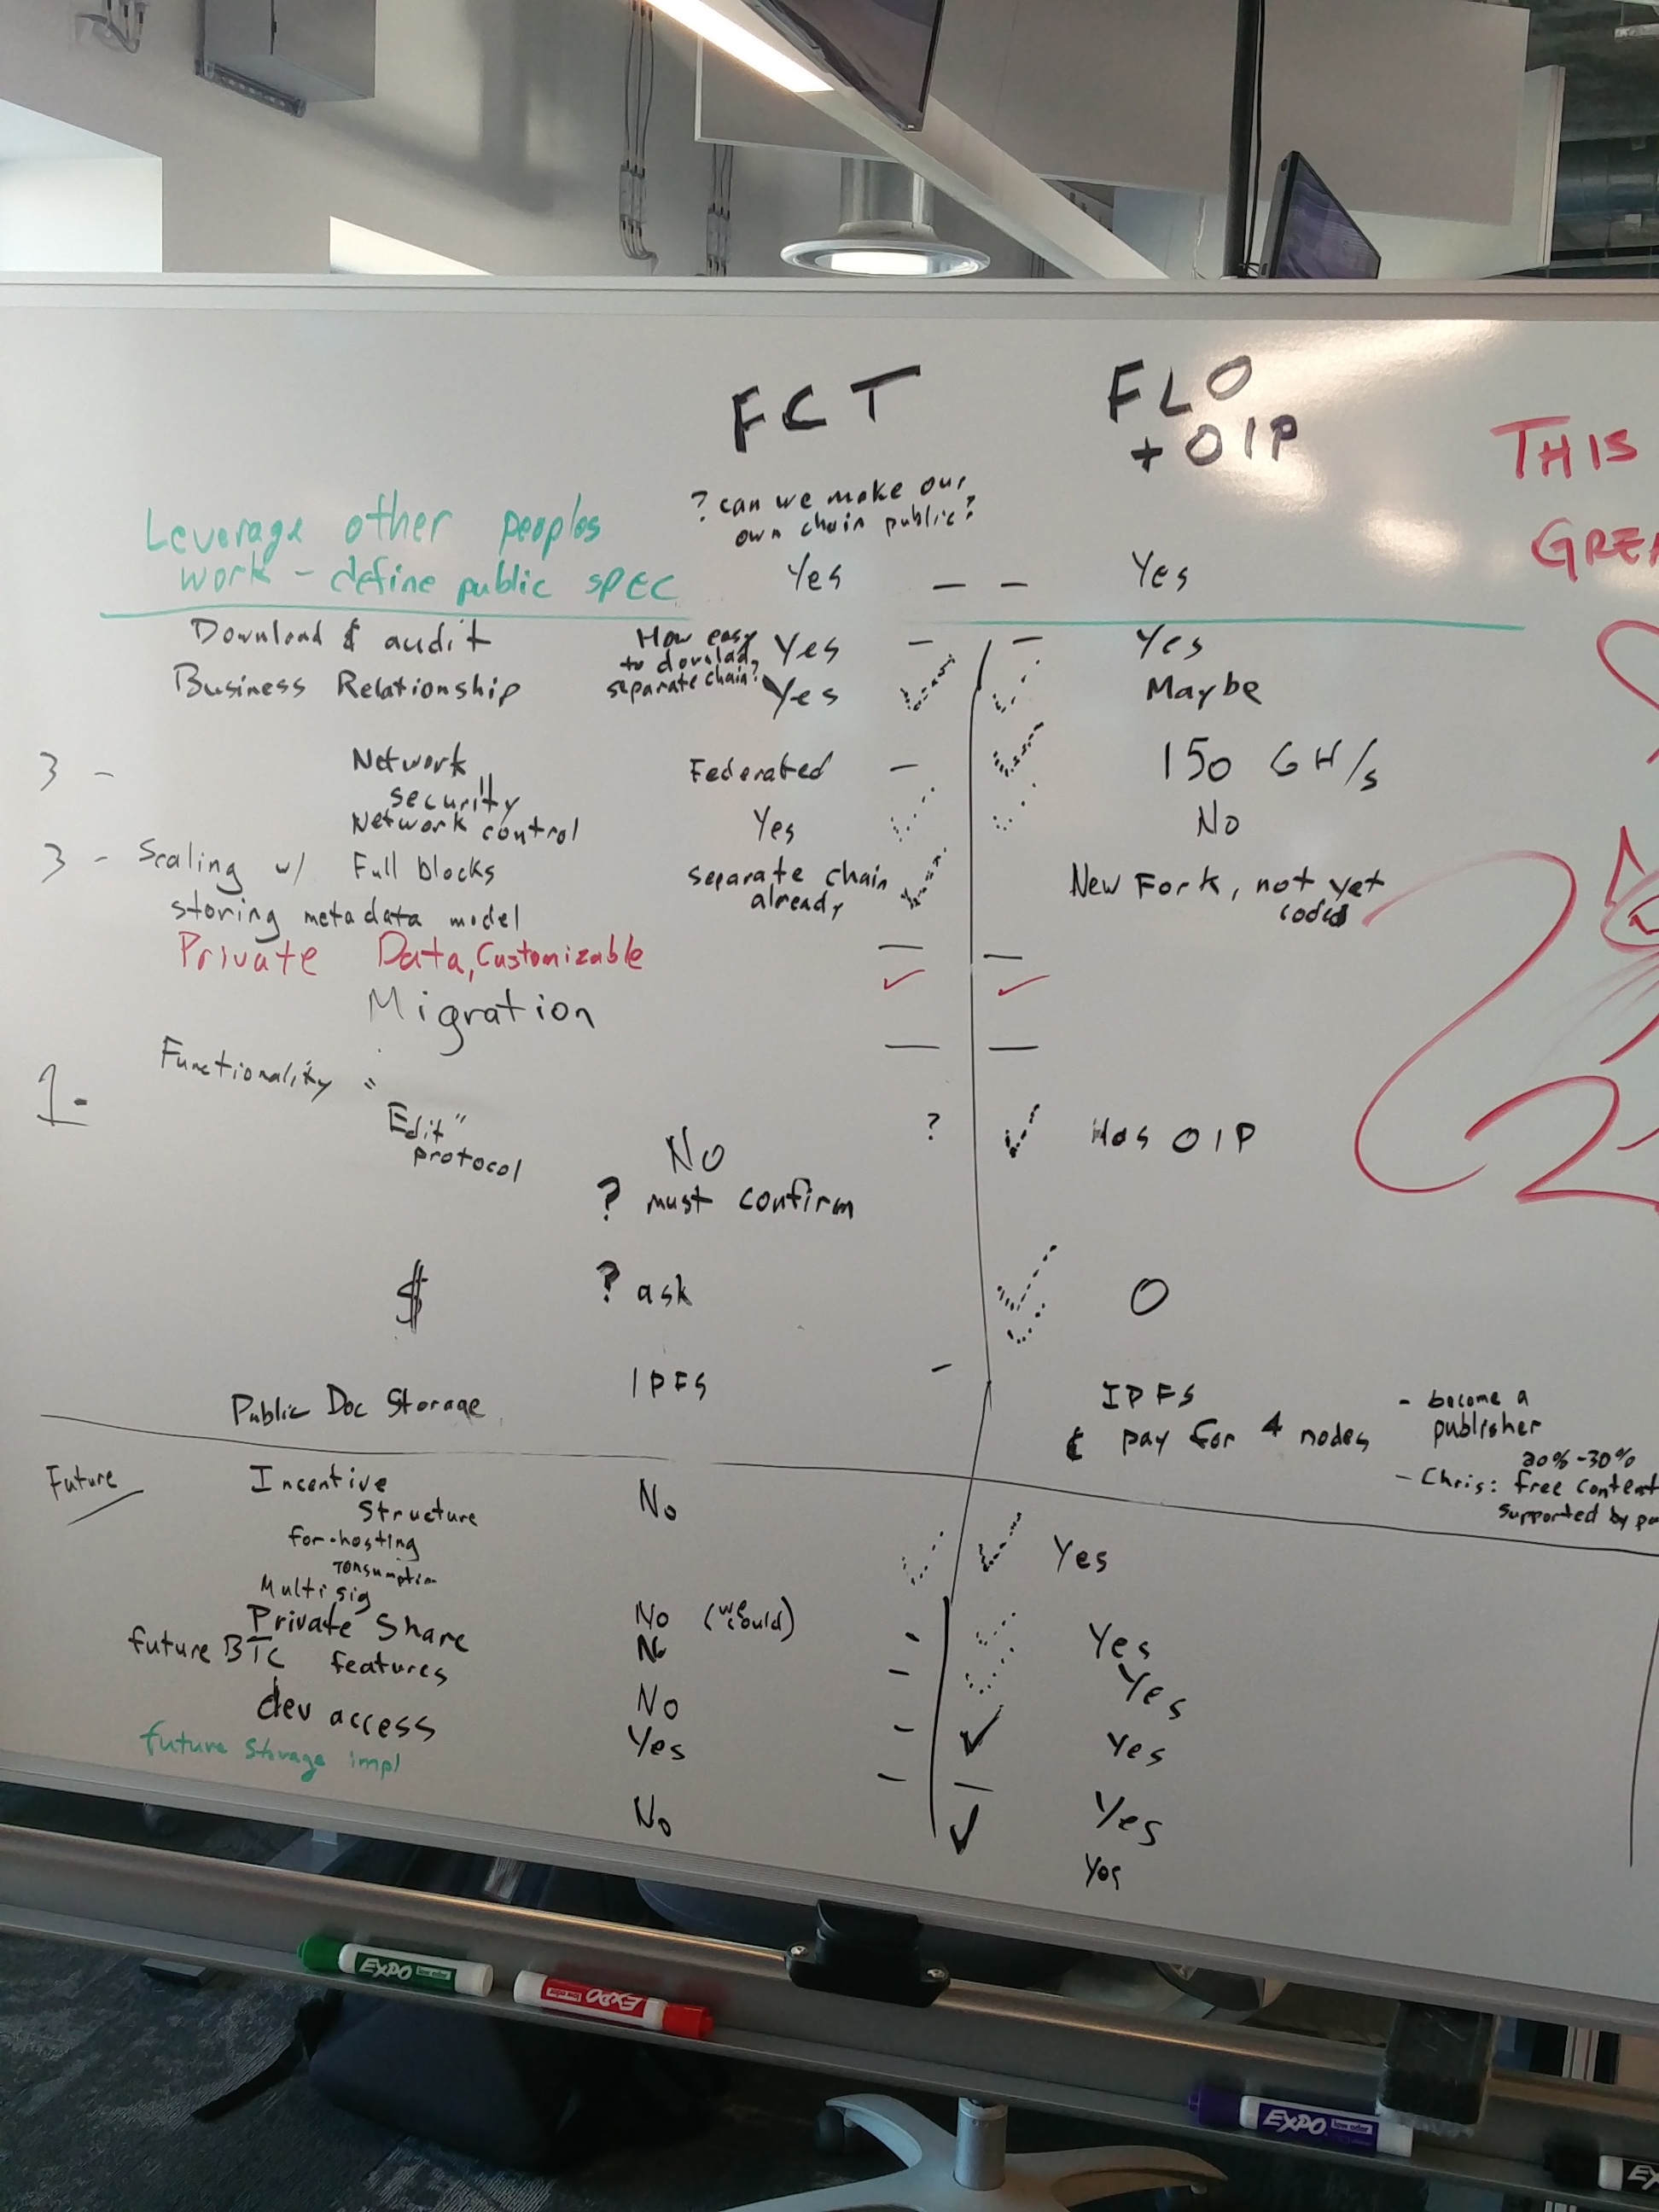 FCT
FLO
+ OIP
THIS
? can we make our
own chain public?
Leverage other peoples
work - define public SPEC
Yes — — Yes
Download & audit
How easy
to download,
separate chain?
Yes — — Yes
Business Relationship
Yes
Maybe
3 - Network
security
Federated —
150 GH/s
Network control
Yes
No
3 - Scaling w/ Full blocks
storing metadata model
separate chain
already
New Fork, not yet
coded
Private Data, Customizable — —
Migration — —
1. Functionality "
Edit"
protocol
No
? must confirm
?
Has OIP
$
? ask
0
Public Doc Storage
IPFS -
IPFS
& pay for 4 nodes
- become a
publisher
20%-30%
- Chris: free content
supported by
Future
Incentive
Structure
for-hosting
consumption
No
Yes
Multisig
No (we could) -
Yes
Private Share
No -
Yes
future BTC features
No -
Yes
dev access
Yes - —
Yes
future storage impl
No
Yes
EXPO low odor
EXPO low odor
EXPO low odor